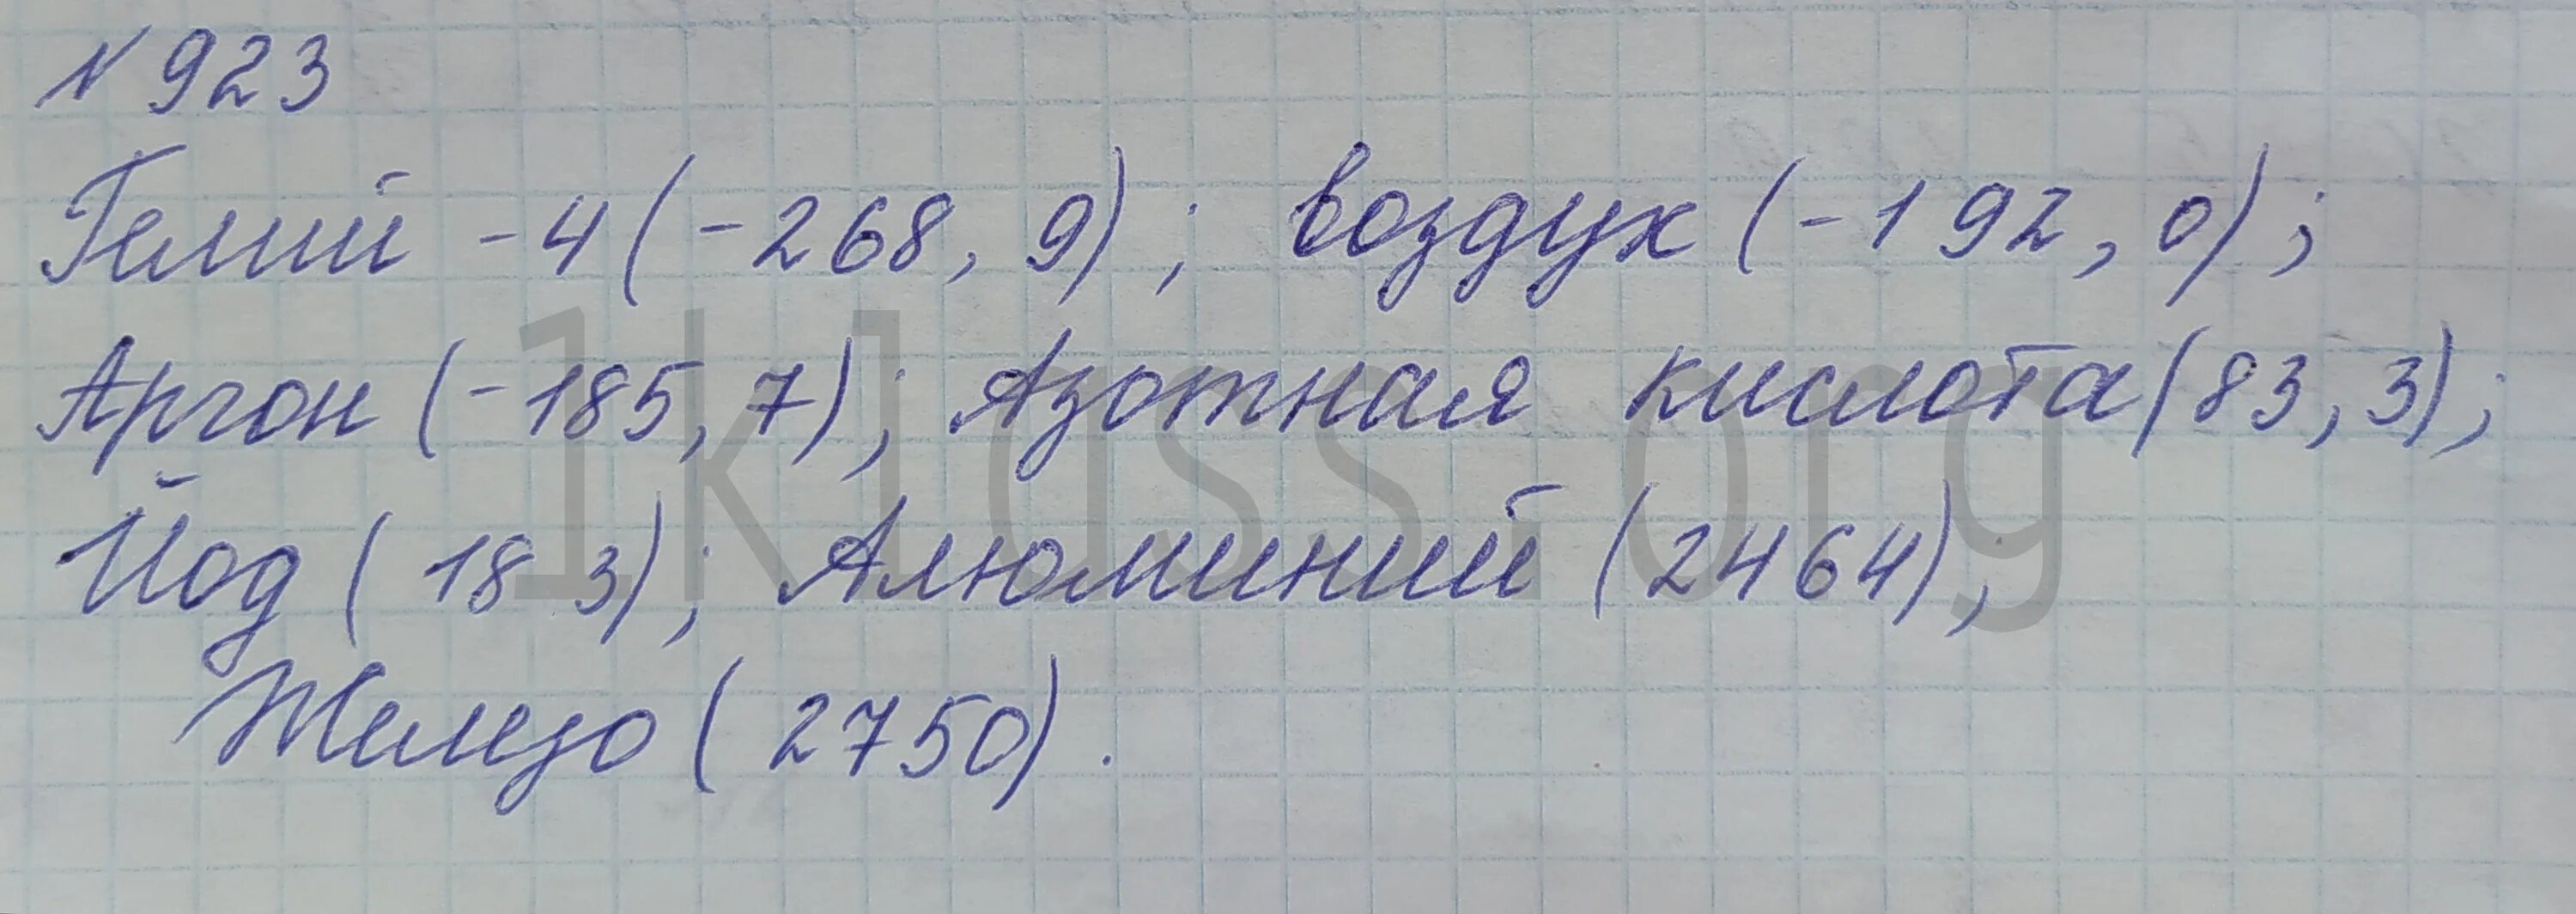 № 923
Гелий -4 (-268, 9); воздух (-192, 0);
Аргон (-185, 7); Азотная кислота (83, 3);
Йод (183); Алюминий (2464);
Железо (2750).
1klass.org